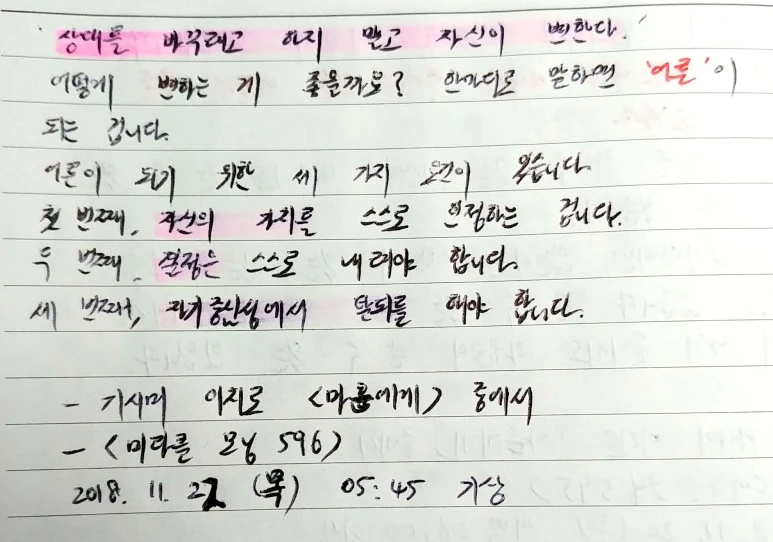 상대를 바꾸려고 하지 말고 자신이 변한다.
어떻게 변하는 게 좋을까요? 한마디로 말하면 '어른'이
되는 겁니다.
어른이 되기 위한 세 가지 요건이 있습니다.
첫 번째, 자신의 가치를 스스로 인정하는 겁니다.
두 번째, 결정은 스스로 내려야 합니다.
세 번째, 자기 중심성에서 탈피를 해야 합니다.
- 기시미 이치로 <마흔에게> 중에서
- <미라클 모닝 596>
2018. 11. 22 (목) 05:45 기상